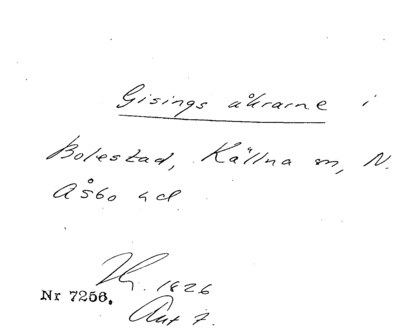 Gisings åkrarne i
Bolestad, Källna sn, N.
Åsbo hd
Nr 7256. 1826
Aut 7.